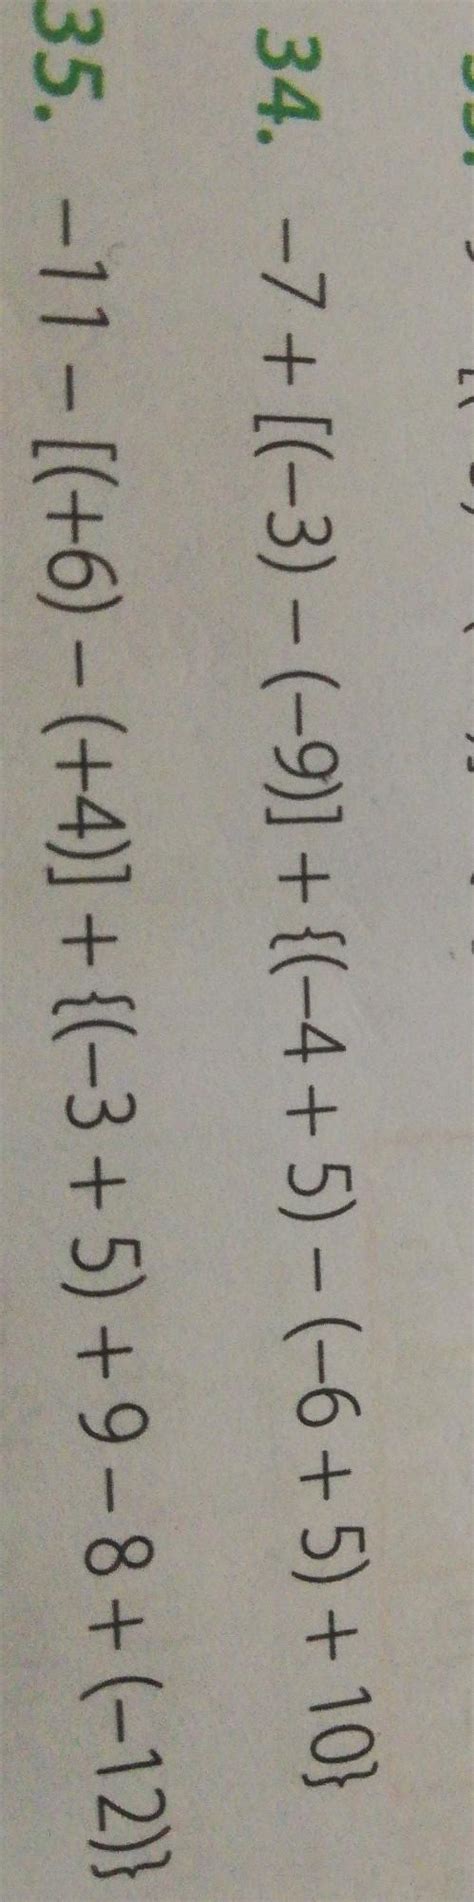 34. −7 + [(−3) − (−9)] + {(−4 + 5) − (−6 + 5) + 10}
35. −11 − [(+6) − (+4)] + {(−3 + 5) + 9 − 8 + (−12)}